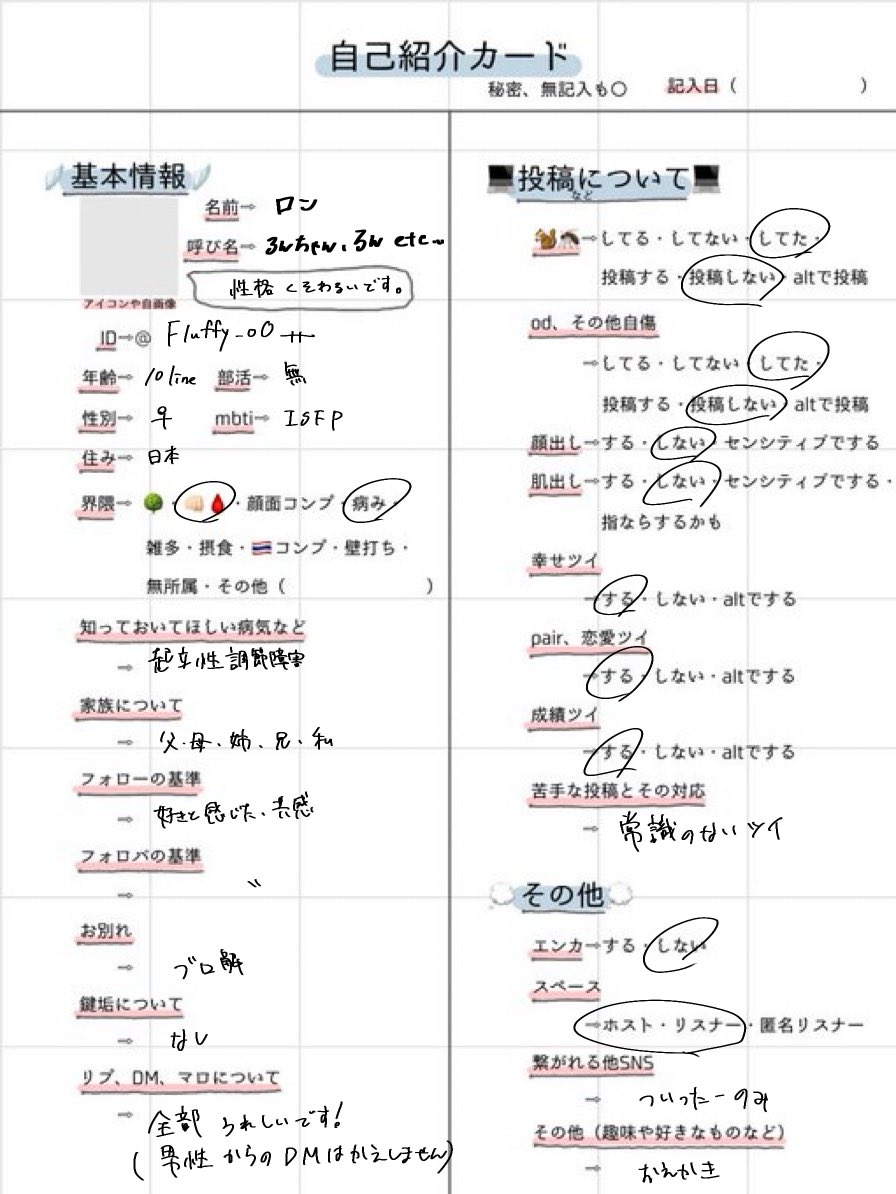 自己紹介カード
秘密、無記入も〇 記入日（ ）
基本情報
名前→ ロン
呼び名→ ろんちゃん、ろん etc...
性格くそわるいです。
アイコンや自画像
ID→@ Fluffy_oO
年齢→ 10 line 部活→ 無
性別→ ♀ mbti→ ISFP
住み→ 日本
界隈→ 🌳・👊🏻🩸・顔面コンプ・病み・
雑多・摂食・🇹🇭コンプ・壁打ち・
無所属・その他（ ）
知っておいてほしい病気など
→ 起立性調節障害
家族について
→ 父・母・姉、兄・私
フォローの基準
→ 好きと感じた、共感
フォロバの基準
→ 〃
お別れ
→ ブロ解
鍵垢について
→ なし
リプ、DM、マロについて
→ 全部 うれしいです!
( 男性からのDMはかえしません)
💻投稿について💻
など
🐿️🦟→してる・してない・してた・
投稿する・投稿しない・altで投稿
od、その他自傷
→してる・してない・してた・
投稿する・投稿しない・altで投稿
顔出し→する・しない・センシティブでする
肌出し→する・しない・センシティブでする・
指ならするかも
幸せツイ
→する・しない・altでする
pair、恋愛ツイ
→する・しない・altでする
成績ツイ
→する・しない・altでする
苦手な投稿とその対応
→ 常識のないツイ
その他
エンカ→する・しない
スペース
→ホスト・リスナー・匿名リスナー
繋がれる他SNS
→ ついったーのみ
その他（趣味や好きなものなど）
→ おえかき